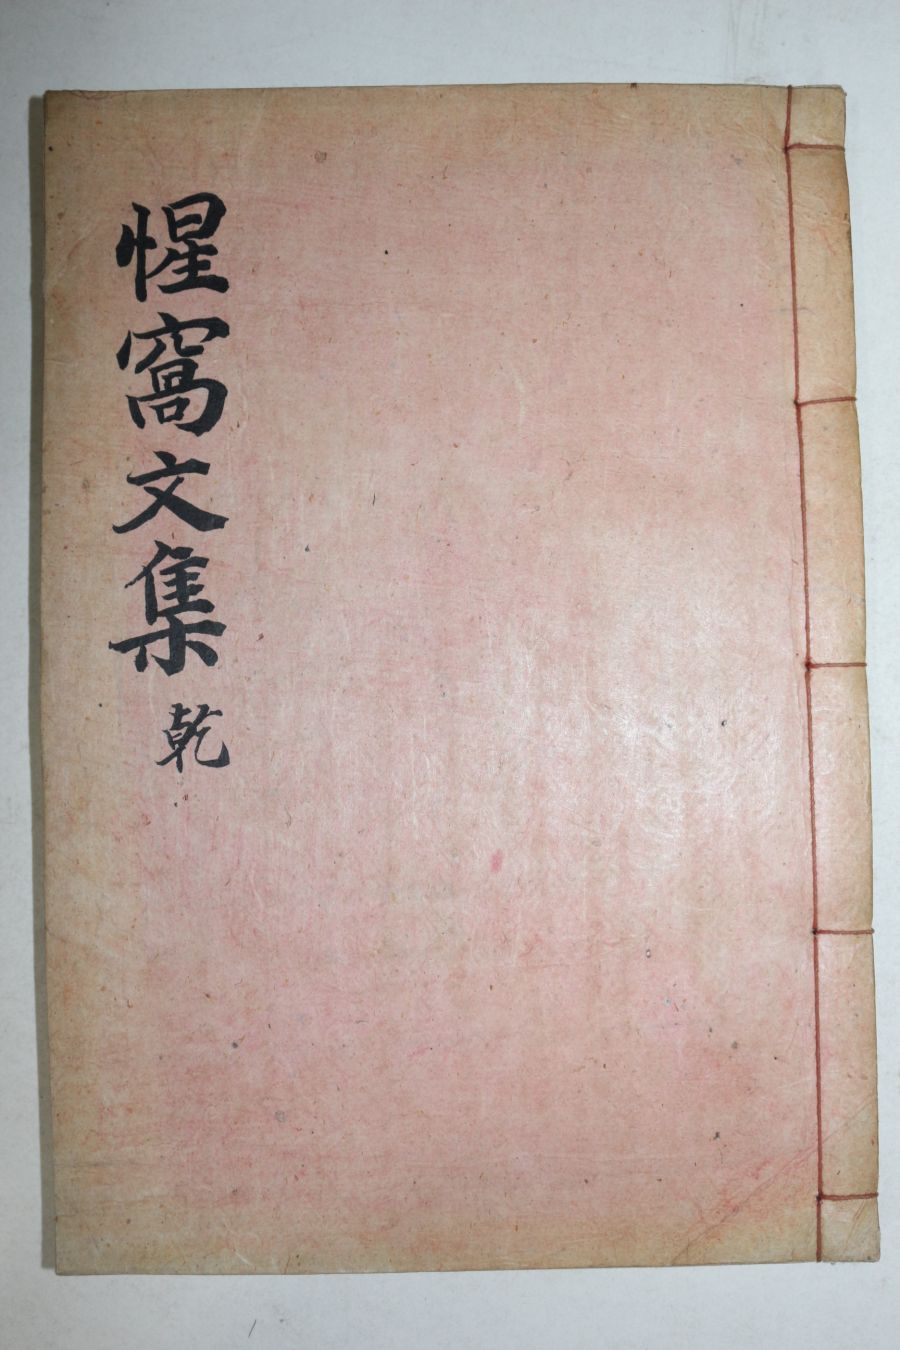 惺窩文集 乾